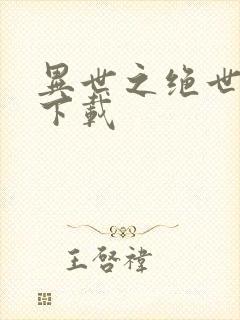 異世之绝世
下載
王啓禕